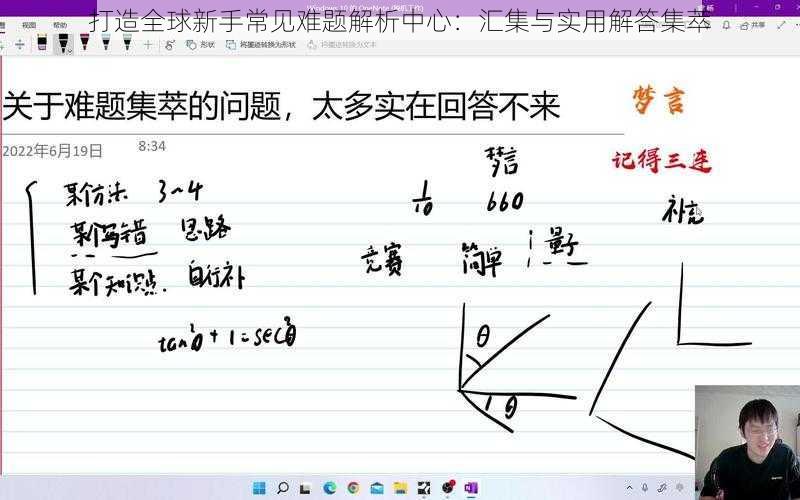 打造全球新手常见难题解析中心：汇集与实用解答集萃
将墨迹转换为形状
将墨迹转换为文本
关于难题集萃的问题，太多实在回答不来
梦言
2022年6月19日 8:34
梦言
记得三连
某个方法 3~4
1/10 660
补充
某个写错 思路
竞赛 简单 量子
某个知识点. 自行补
tan²θ+1=sec²θ
θ
θ